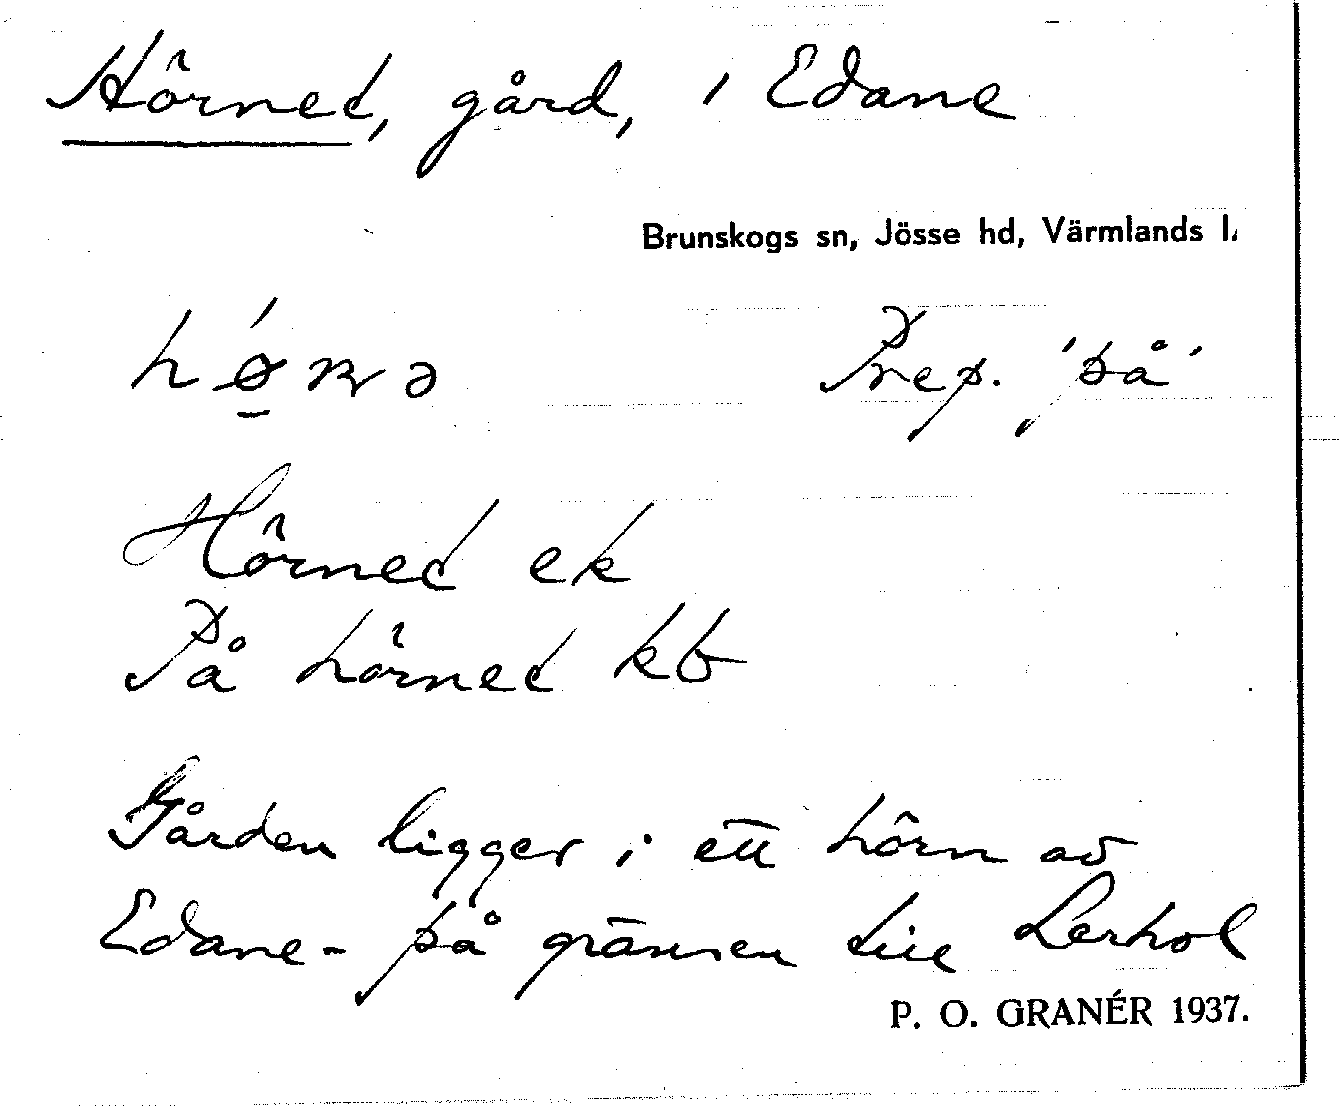 Hörnet, gård, i Edane
Brunskogs sn, Jösse hd, Värmlands l.
Prep. 'på'
Hörnet ek
På hörnet kb
Gården ligger i ett hörn av
Edane - på gränsen till Lerhol
P. O. GRANÉR 1937.